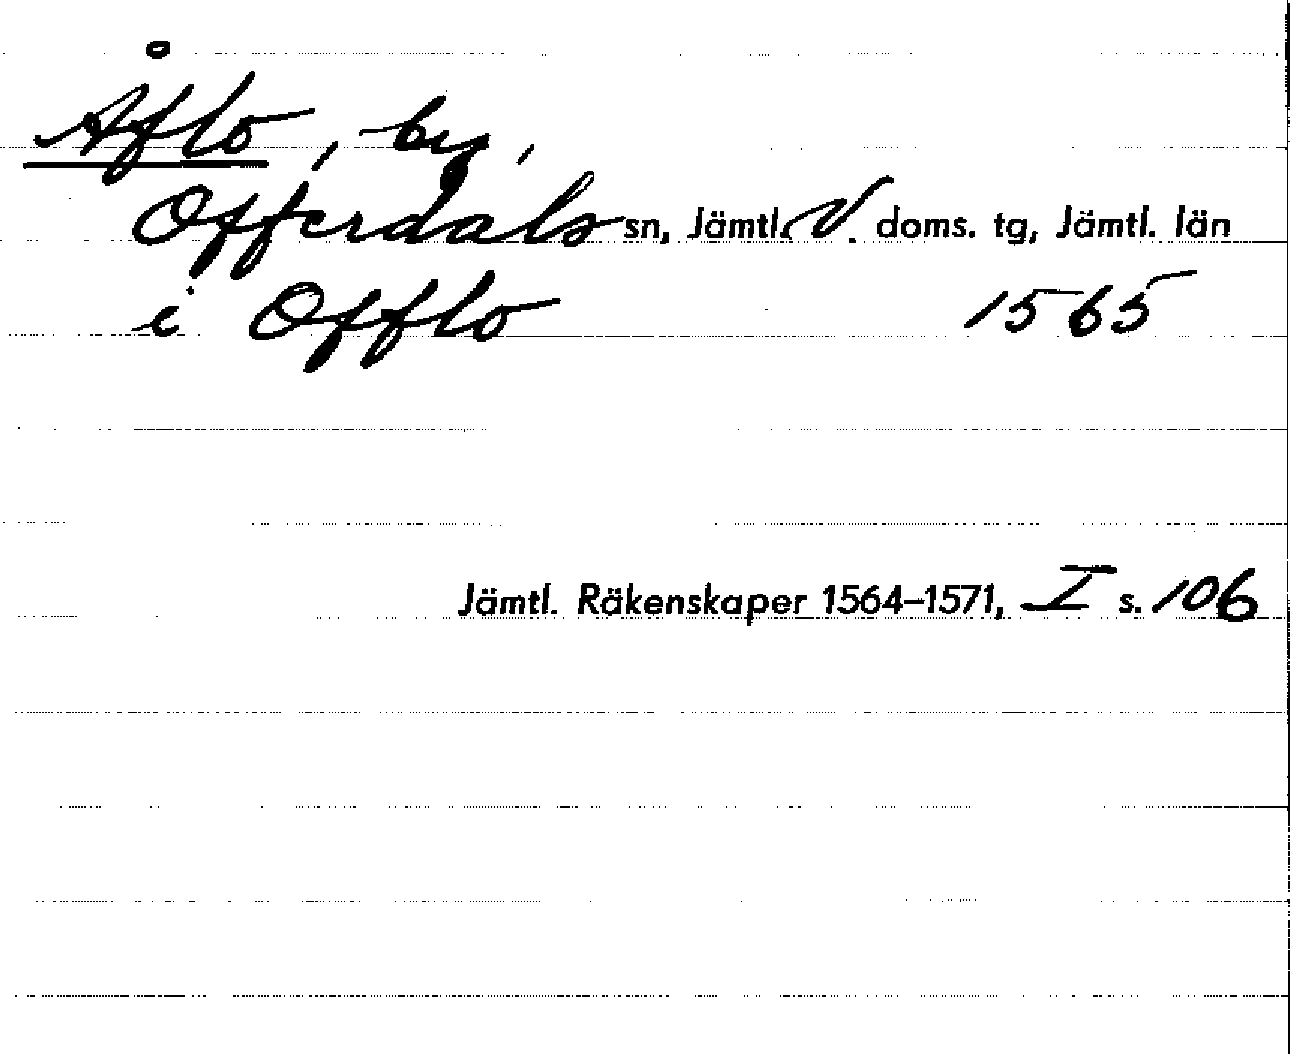 Åflo, by,
Offerdals sn, Jämtl. V. doms. tg, Jämtl. län
i Offlo 1565
Jämtl. Räkenskaper 1564–1571, I s. 106